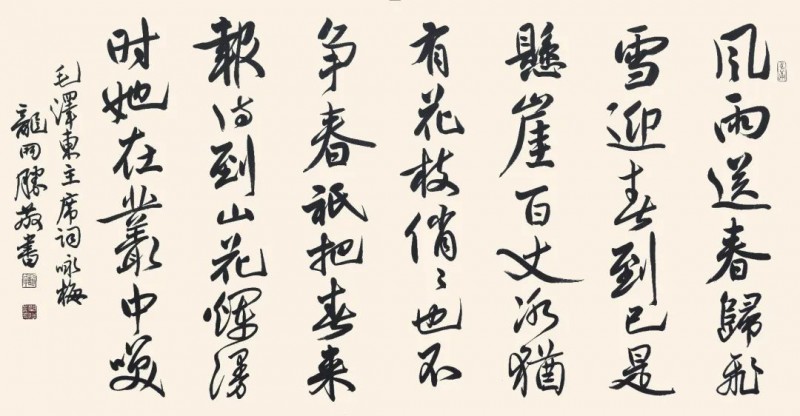 风雨送春歸飛
雪迎春到已是
懸崖百丈冰猶
有花枝俏〻也不
争春祇把春来
報待到山花爛漫
时她在叢中笑
毛澤東主席词咏梅
龍開勝敬書